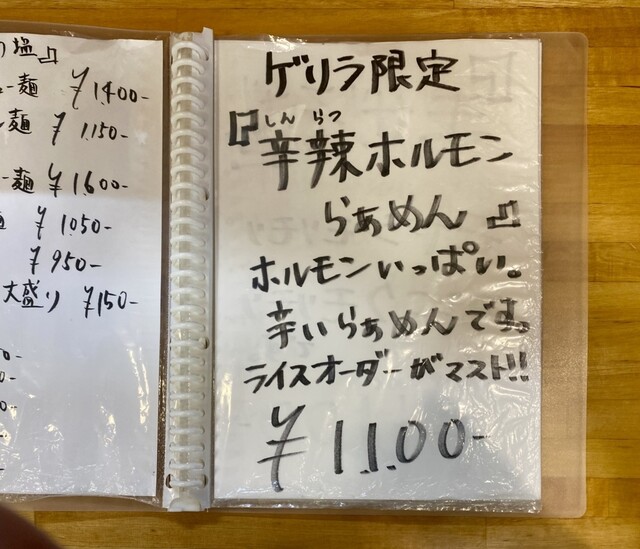 塩』
麺 ¥1.400-
麺 ¥1.150-
麺 ¥1.600-
¥1050-
¥950-
大盛り ¥150-
ゲリラ限定
しんらつ
『辛辣ホルモン
らぁめん』
ホルモンいっぱい。
辛いらぁめんです。
ライスオーダーがマスト!!
¥1.1.00-